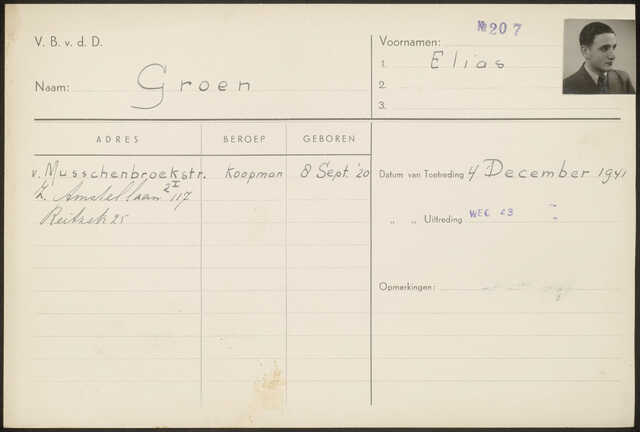 V. B. v. d. D.
№ 207
Voornamen:
1. Elias
2.
3.
Naam: Groen
ADRES BEROEP GEBOREN
v. Musschenbroekstr. Koopman 8 Sept. '20
2I
Z. Amstellaan 117
Reitzstr 25
Datum van Toetreding 4 December 1941
„ „ Uittreding WEG 43
Opmerkingen: